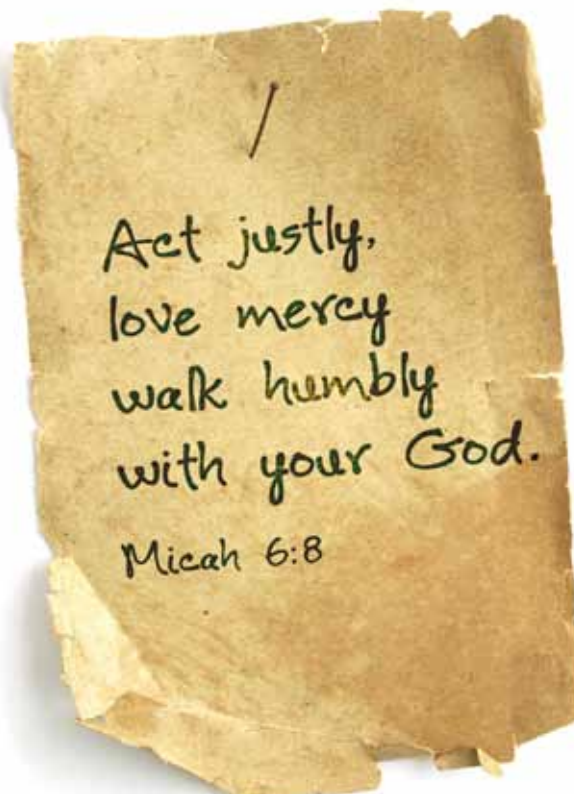 Act justly,
love mercy
walk humbly
with your God.
Micah 6:8